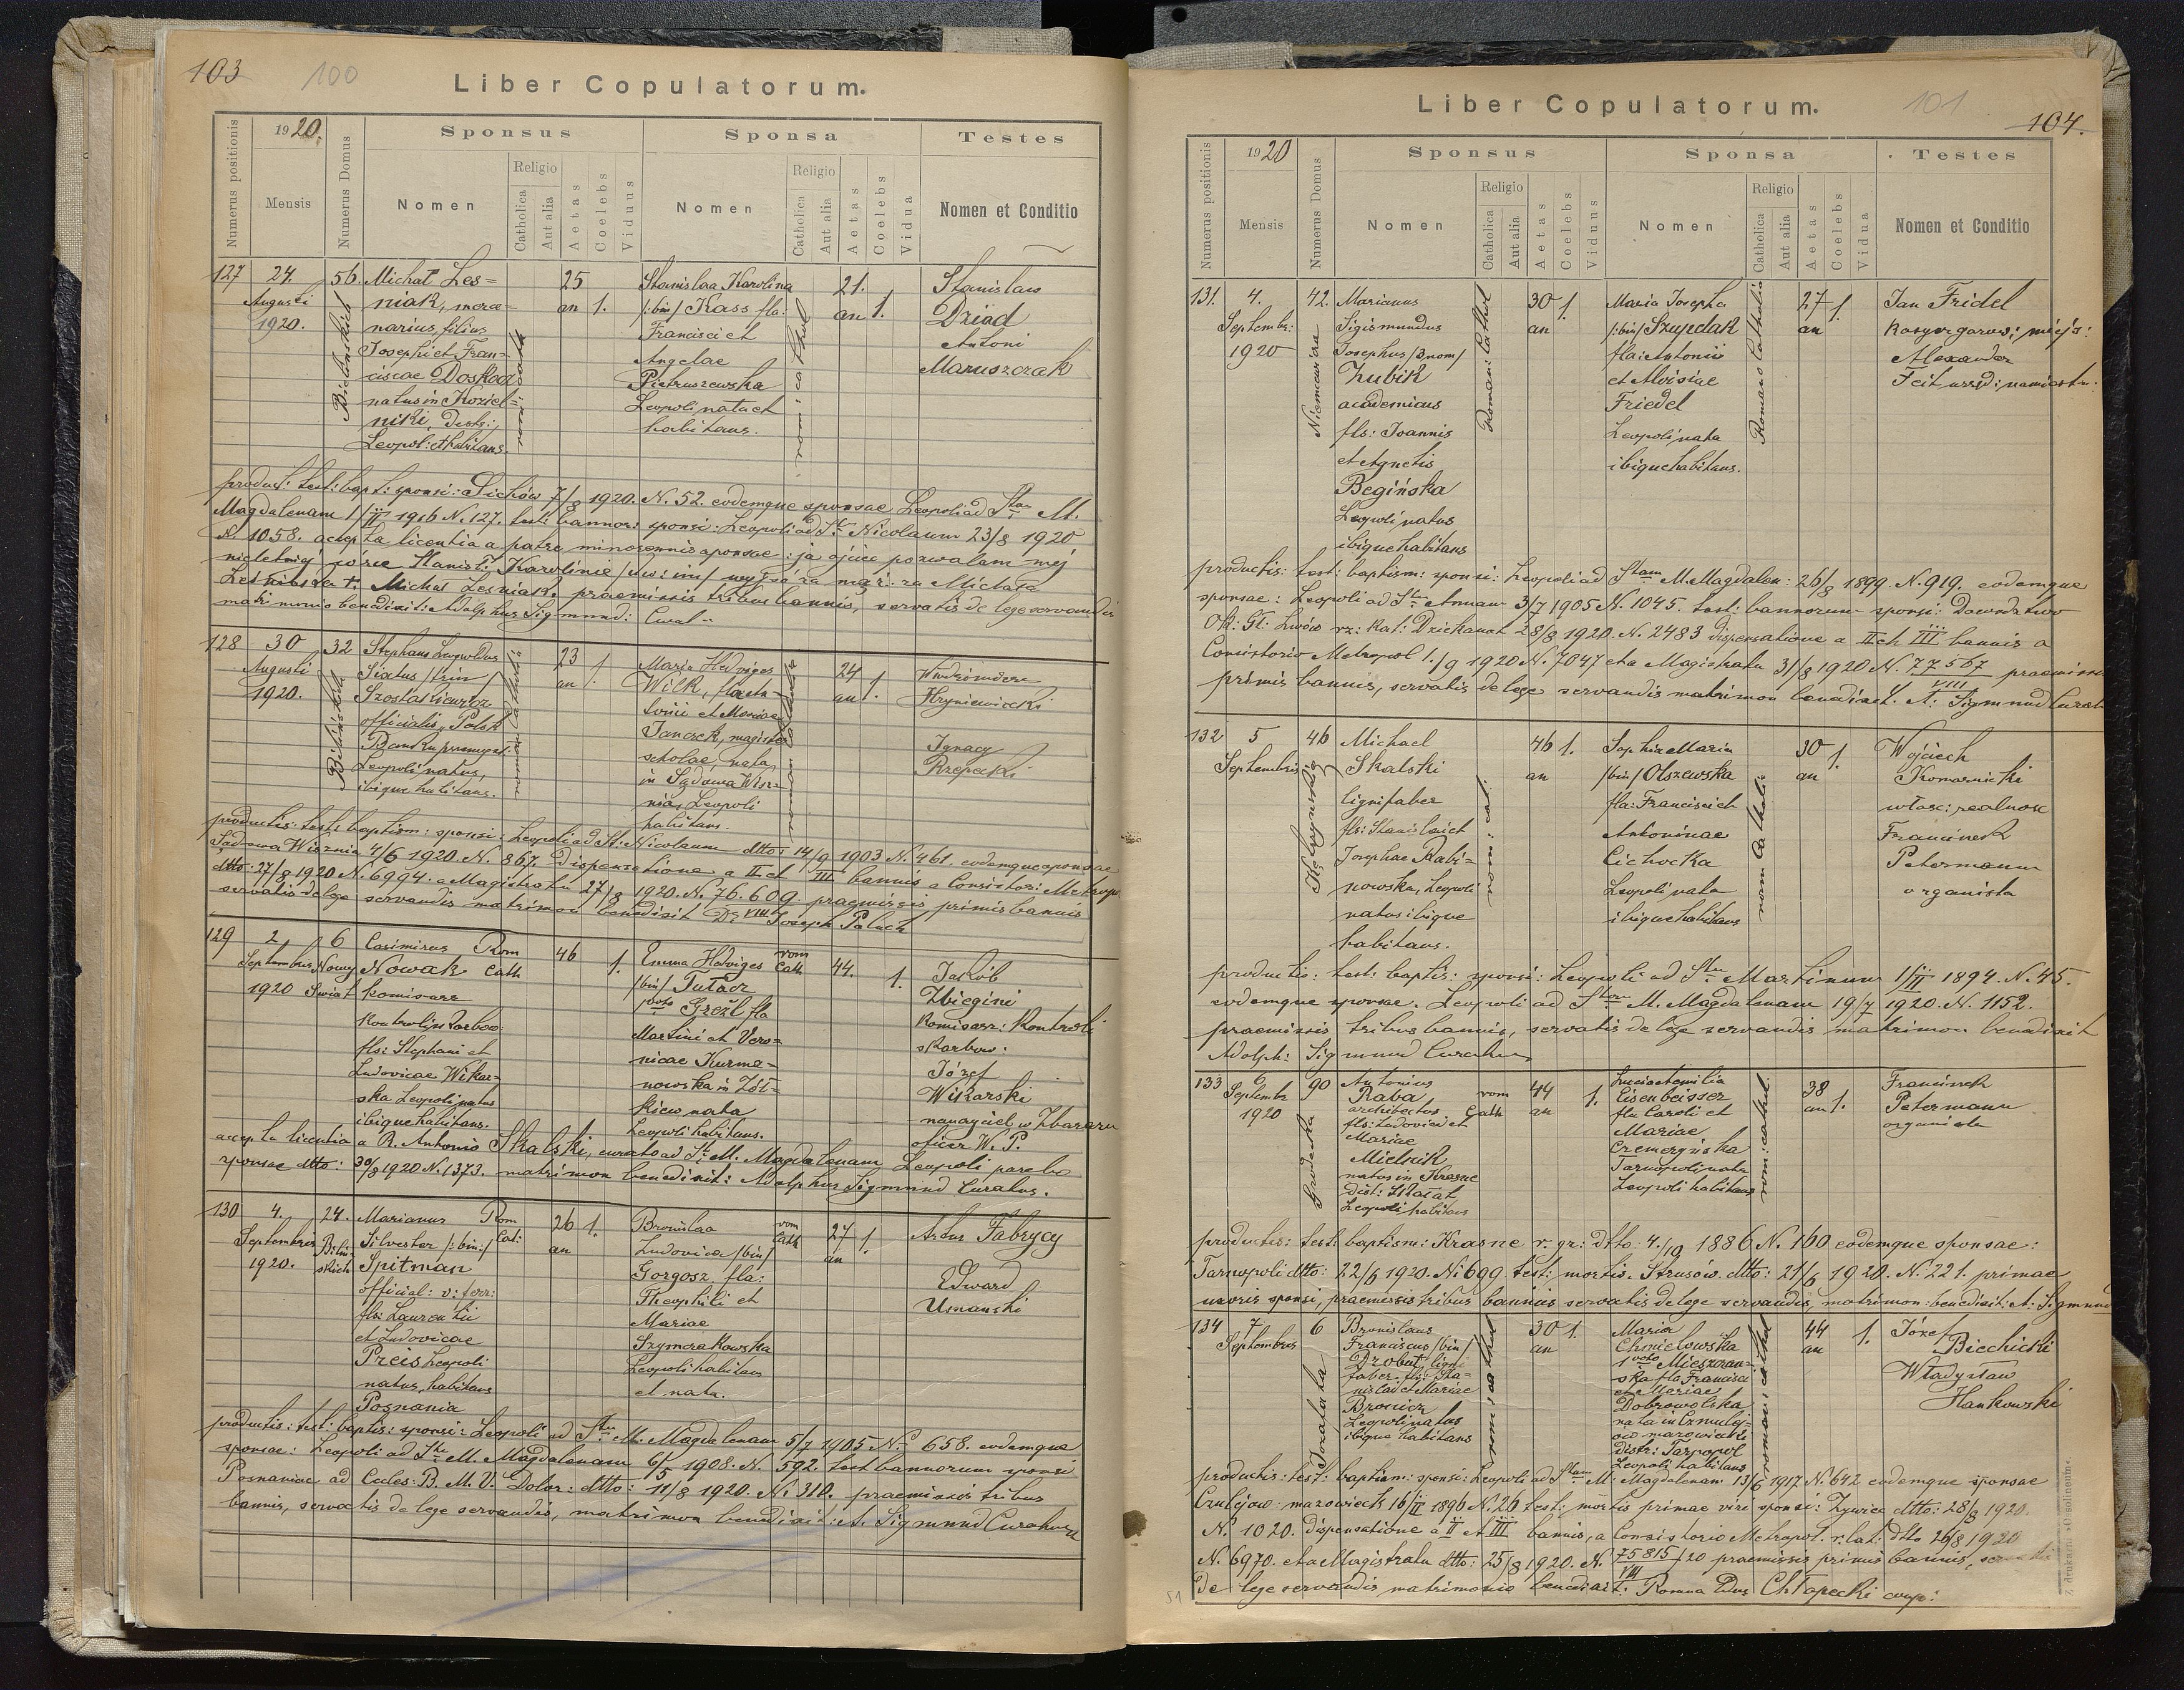 103 100
Liber Copulatorum.
Numerus positionis
1920.
Mensis
Numerus Domus
Sponsus
Nomen
Religio
Catholica
Aut alia
Aetas
Coelebs
Viduus
Sponsa
Nomen
Religio
Catholica
Aut alia
Aetas
Coelebs
Vidua
Testes
Nomen et Conditio
127 24. 56. Michał Les= 25 Stanislaa Karolina 21. Stanislaw
Augusti niak, merca= an 1. /:bin/ Kass fla: an 1. Dziad
1920. narius, filius Francisci et Antoni
Josephi et Fran= Angelae Maruszczak
ciscae Doskocz Pietruszewska
natus in Koziel= Leopoli nata et
niki, Distr:, habitans.
Leopol: et habitans.
product: test: bapt: sponsi: Sichów 7/8 1920. N. 52. eodemque sponsae Leopoli ad Stam M.
Magdalenam 1/II 1916 N. 127. test: bannor: sponsi: Leopoli ad St. Nicolaum 23/8 1920
N. 1058. accepta licentia a patre minorennis sponsae: ja ojciec pozwalam mej
nieletniej córce Stanisł: Karolinie /dw: im/ wyjść za mąż za Michała
Leśniaka +. Michał Leśniak, praemissis tribus bannis, servatis de lege servandis
matrimonio benedixit: Adolphus Sigmund: Curat..
128 30 32 Stephanus Leopoldus 23 1. Maria Hedviges 24 1. Włodzimierz
Augusti Sixtus /trin/ an Wilk, fla: an Hryniewiecki
1920. Szostakiewicz tonii et Mariae
officialis Polsk Janczek, magister Ignacy
Banku przemysł. scholae, nata Rzepecki
Leopoli natus, in Sądowa Wisz=
ibique habitans. nia, Leopoli
habitans.
productis: test: baptism: sponsi: Leopoli ad St: Nicolaum dtto: 14/9 1903 N. 461. eodemque sponsae
Sadowa Wisznia 4/6 1920. N. 867. Dispensatione a II et III bannis a Consistor: Metropol
dtto: 27/8 1920 N. 6994. a Magistratu 27/8 1920. N. 76.609 praemissis primis bannis
VIII
servatis de lege servandis matrimon benedixit Dr Joseph Paluch
129 2 6 Casimirus Rom 46 1. Emma Hedviges rom 44. 1. Jakób
Septembris Nowy Nowak Cath /bin/ Tutacz Cath Zbiegini
1920 Świat komisarz 1voto Grežl fla Komisarz: Kontroli
Kontroli Skarbow: Martini et Vero= skarbow:
fls: Stephani et nicae Kurma= Józef
Ludovicae Wikar= nowska in Żół= Wikarski
ska Leopoli natus kiew nata nauczyciel w Zbarażu
ibique habitans. Leopoli habitans. oficer W. P.
accepta licentia a R. Antonio Skalski, curato ad St. M. Magdalenam Leopoli parocho
sponsae dtto: 30/8 1920 N. 1373. matrimon benedixit: Adolphus Sigmund Curatus.
130 4. 24. Marianus Rom 26 1. Bronislaa rom 27 1. Artur Fabrycy
Septembris Biliń= Silvester /:bin:/ Cat: an Ludovica /bin/ Cath an
1920. skich Spitman Gorgosz fla: Edward
official: v: ferr: Theophili et Umański
fls: Laurentii Mariae
et Ludovicae Szymczakowska
Preis Leopoli Leopoli habitans
natus, habitans et nata.
Posnania
productis: test: baptis: sponsi: Leopoli ad Stam M. Magdalenam 5/7 1905 No 658. eodemque
sponsae: Leopoli ad Stam M. Magdalenam 6/5 1908. N. 592. test bannorum sponsi
Posnaniae ad Eccles: B. M. V. Dolor: dtto: 11/8 1920. N. 310. praemissis tribus
bannis, servatis de lege servandis, matrimon benedixit: A. Sigmund Curatus
Liber Copulatorum.
101
104.
Numerus positionis
1920
Mensis
Numerus Domus
Sponsus
Nomen
Religio
Catholica
Aut alia
Aetas
Coelebs
Viduus
Sponsa
Nomen
Religio
Catholica
Aut alia
Aetas
Coelebs
Vidua
Testes
Nomen et Conditio
131. 4. 42. Marianus 30 1. Maria Josepha 27 1. Jan Fridel
Septembr: Sigismundus an /:bin/ Szupdak an
1920 Josephus /3 nom/ fla: Antonii Alexander
Zubik et Aloisiae Feit urzęd: namiestn.
Niemcewicza academicus Friedel
fls: Joannis Leopoli nata
et Agnetis ibique habitans.
Begińska
Leopoli natus
ibique habitans
productis: test: baptism: sponsi: Leopoli ad Stam M. Magdalen: 26/8 1899. N. 919. eodemque
sponsae: Leopoli ad Stam Annam 3/7 1905 N. 1045. test: bannorum sponsi: Dowództwo
Ok: Gł: Lwów rz: kat: Dziekanat 28/8 1920. N. 2483 dispensatione a II et III bannis a
Consistorio Metropol 1./9 1920 N. 7047 et a Magistratu 31/8 1920 N. 77567 praemissis
VIII
primis bannis, servatis de lege servandis matrimon benedixit. A. Sigmund Curat
132 5 46 Michael 46 1. Sophia Maria 30 1. Wojciech
Septembris Skalski an /bin/ Olszewska an Komarnicki
lignifaber fla: Francisci et właśc: realnośc
fls: Stanislai et Antoninae Franciszek
Josephae Rabi= Cichocka Petermann
nowska, Leopoli Leopoli nata organista
natus ibique ibique habitans
habitans.
productis: test: baptis: sponsi: Leopoli ad Stum Martinum 1/II 1894. N. 45.
eodemque sponsae. Leopoli ad Stam M. Magdalenam 19/7 1920. N. 1152.
praemissis tribus bannis, servatis de lege servandis matrimon benedixit
Adolph: Sigmund Curatus
133 6 90 Antonius 44 1. Lucia Aemilia 38 1. Franciszek
Septembr Raba rom an Eisenbeisser an Petermann
1920 architectus Cath fla Caroli et organista
fls: Ludovici et Mariae
Mariae Czemeryńska
Mielnik Tarnopoli nata
natus in Krasne Leopoli habitans
dist: Skałat
Leopoli habitans
productis: test: baptism: Krasne r. gr: dtto: 4./19 1886 N. 160 eodemque sponsae:
Tarnopoli dtto: 22/6 1920. N: 699 test: mortis: Strusów dtto: 21/6 1920. N. 221. primae
uxoris sponsi, praemissis tribus bannis servatis de lege servandis, matrimon: benedixit: A. Sigmund
134 7 6 Bronislaus 30 1. Maria 44 1. Józef
Septembris Franciscus /bin/ an Chmielowska an Biechicki
Drobut ligni 1voto Mieszczań= Władysław
faber fls: Sta= ska fla Francisci Hankowski
nislai et Mariae et Mariae
Bronicz Dobrowolska
Leopoli natus nata in Czmulej=
ibique habitans ow mazowiecki
distr: Tarnopol
Leopoli habitans
productis: test: baptism: sponsi: Leopoli ad Stam M: Magdalenam 13/6 1917 N. 642 eodemque sponsae
mazowieck 16/II 1896 N. 26 test: mortis primae viri sponsi: Żywiec dtto: 28/8 1920.
N. 1020. dispensatione a II et III bannis, a Consistorio Metropol. r. lat: dtto 26/8 1920
N. 6970. et a Magistratu dtto: 25/8 1920. N. 75815/20 praemissis primis bannis, servatis
VIII
de lege servandis matrimonio benedixit: Chłapecki coop:
51